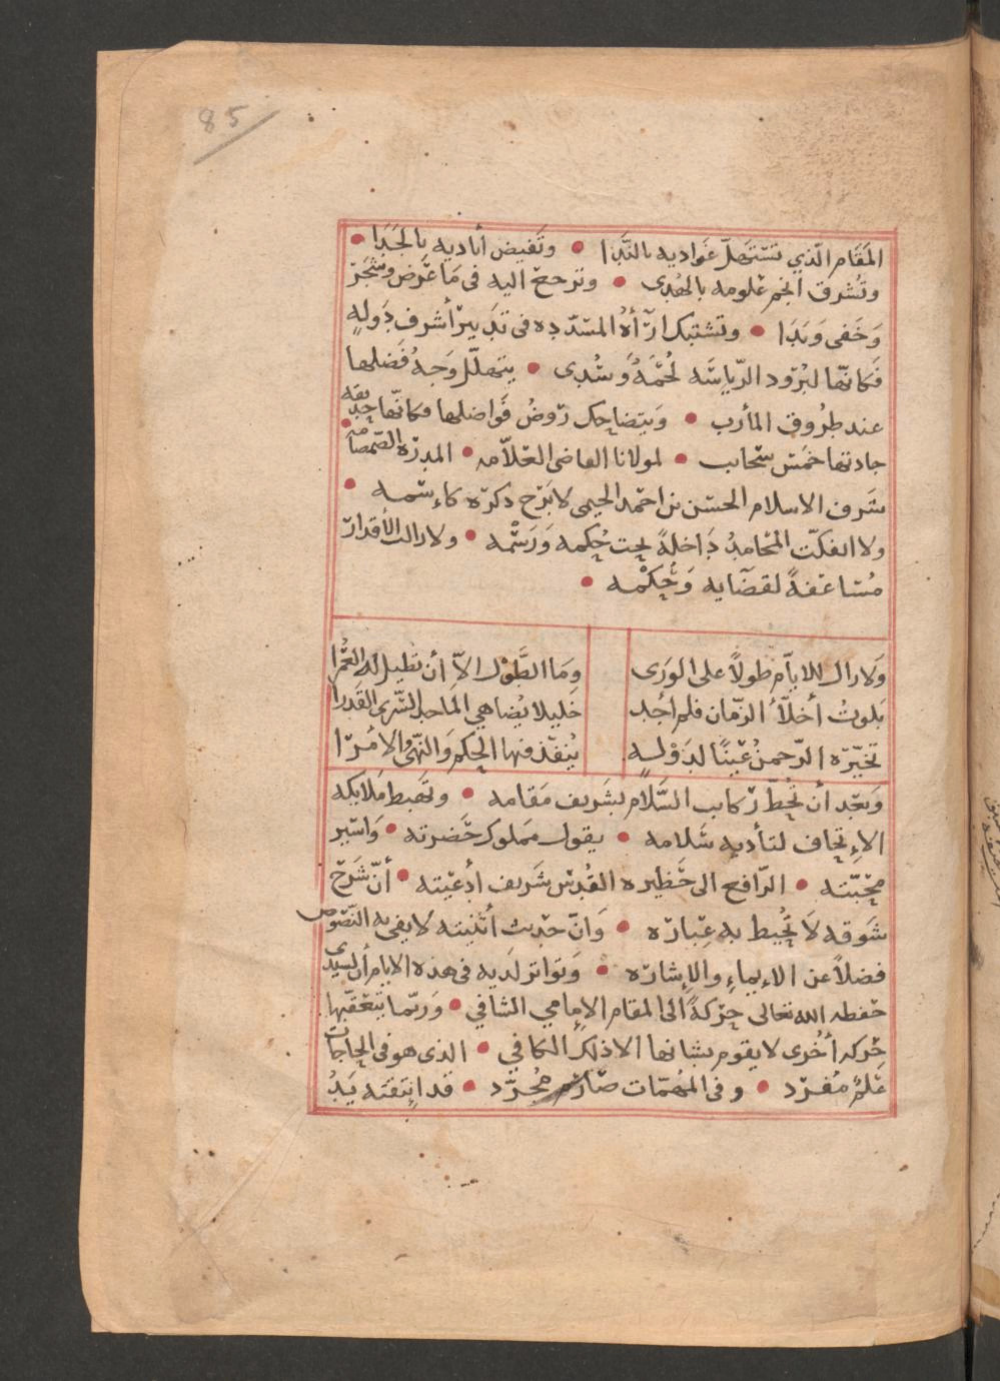 85
المَقَام الّذي تستهلّ غَواديه بالنَّدَا • وتَفيض أياديه بالجَدَا •
وتُشرق انجم علومه بالهُدى • وترجع اليه فى مَا عَرَض وشَجَر
وَخَفى وَبَدَا • وتشتبك ارآؤه المسَدّده فى تدبير أشرف دَولهٍ
فكانّها لبُرُود الرّياسَه لُحْمَةٌ وسُدى • يتهلّل وَجهُ فَضلها
عند طرُوق المأرب • وَيتضاحك رَوضُ فَواضلها فكانّها حديقه
جادتها خمس سحايب • لمولانا القاضى العلاّمه • المدرَه الصّمصامه •
شرف الاسلام الحسَن بن احمد الحيمى لا بَرَح ذكرَه كاءسمه •
ولا انفكّت المحامدُ دَاخلةً تحت حُكمه وَرَسْمه • ولا زالت الأقدار
مُسَاعفةً لقضَآيه وَحُكمه •
وَلا زال للايآم طولاً على الوَرى
وَمَا الطَّوْل الاّ أن تطيل له العُمْرا
بَلوتُ أخلّآء الزّمان فلم اجد
خليلا يُضاهي المَاجد السَّرى القَدرا
تخيّره الرّحمنُ عَينًا لدَوْلهٍ
يُنَفّذ فيها الحكم وَالنّهى والامْرا
وَبَعْد أن تُحطّ ركاب السَّلام بشريف مَقامه • وتهبط مَلايكه
الاءتحاف لتأديه سَلامه • يقول مَملوك حَضرته • وَاسير
محَبّته • الرّافع الى حَظيره القُدس شريف أدعيَته • أنّ شَرح
شَوقه لَا تُحيط به عبَارَه • وَانّ حَديث أثنيته لا يفى به النّصوص
فضلاً عن الاءيماءِ والاِشارَه • وَتواتر لَديه فى هذه الايام أن لسيدى
حَفظه الله تعالى حَركةً الى المقام الاِمامي الشافي • وَربّما يتَعقّبها
حَركه أخرى لا يقوم بشانها الا ذلك الكافي • الذى هو فى الحاجات
عَلَمٌ مُفرَد • وفى المهُمّات صَارمٌ مُجرّد • قد انتقته يَدُ